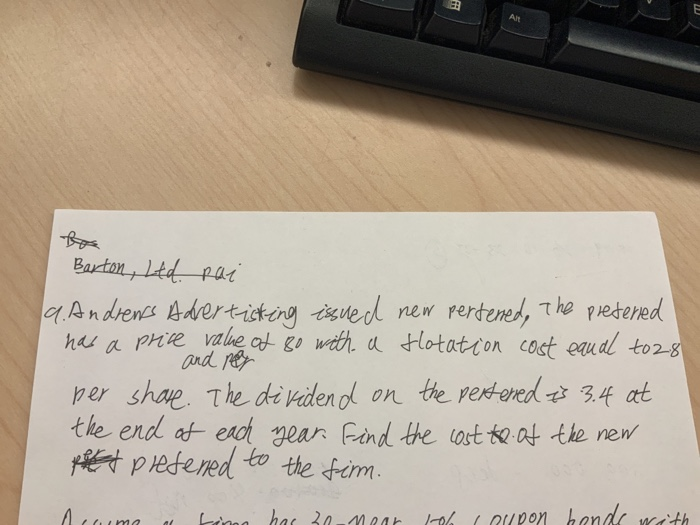 Alt
Bar
Barton, Ltd. pai
9. Andrews Advertisting issued new perfered, The prefered
has a price value of 80 with a flotation cost equal to 2.8
and per
per share. The dividend on the perfered is 3.4 at
the end of each year. Find the cost to of the new
prefered to the firm.
Assume a firm has 30-year 10% coupon bonds with